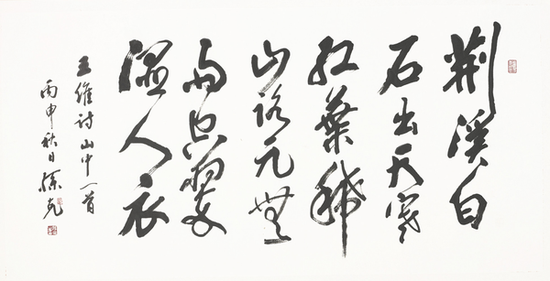 荆溪白
石出天寒
红葉稀
山路元無
雨空翠
湿人衣
王維詩山中一首
丙申秋日孫克